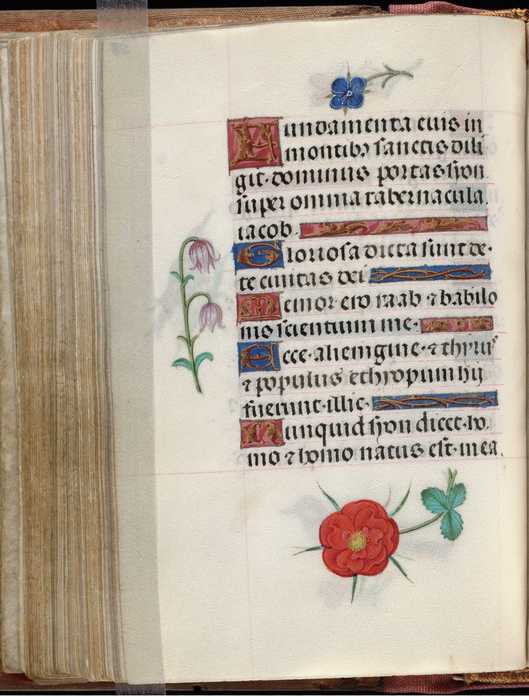 Fundamenta eius in
montibꝫ sanctis dili
git·dominus portas syon
super omnia tabernacula.
iacob.
Gloriosa dicta sunt de·
te ciuitas dei
Memor ero raab ⁊ babilo
nis scientium me·
Ecce·alienigine·⁊ thyrus
⁊ populus ethyopum hij
fuerunt·illic·
Nunquid syon dicet·ho·
mo ⁊ homo natus est·in ea